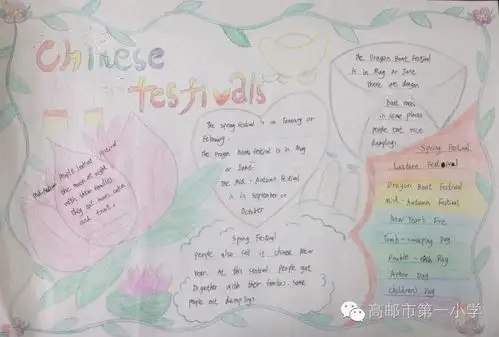 Chinese
festivals
The Dragon Boat Festival
is in May or June
there are dragon
boat races
in some places
people eat rice
dumplings
The Spring Festival is in January or
February.
The Dragon Boat Festival is in May
or June
The Mid-Autumn Festival
is in September or
October
Mid-Autumn
People
the moon at night
with their families
they eat moon cakes
and
Spring Festival
people also call it chinese New
Year. At this festival people get
together with their families. Some
people eat dumplings
Spring Festival
Lantern Festival
Dragon Boat Festival
Mid-Autumn Festival
New Year's Eve
Tomb-sweeping Day
Double-ninth Day
Arbor Day
Children's Day
高邮市第一小学